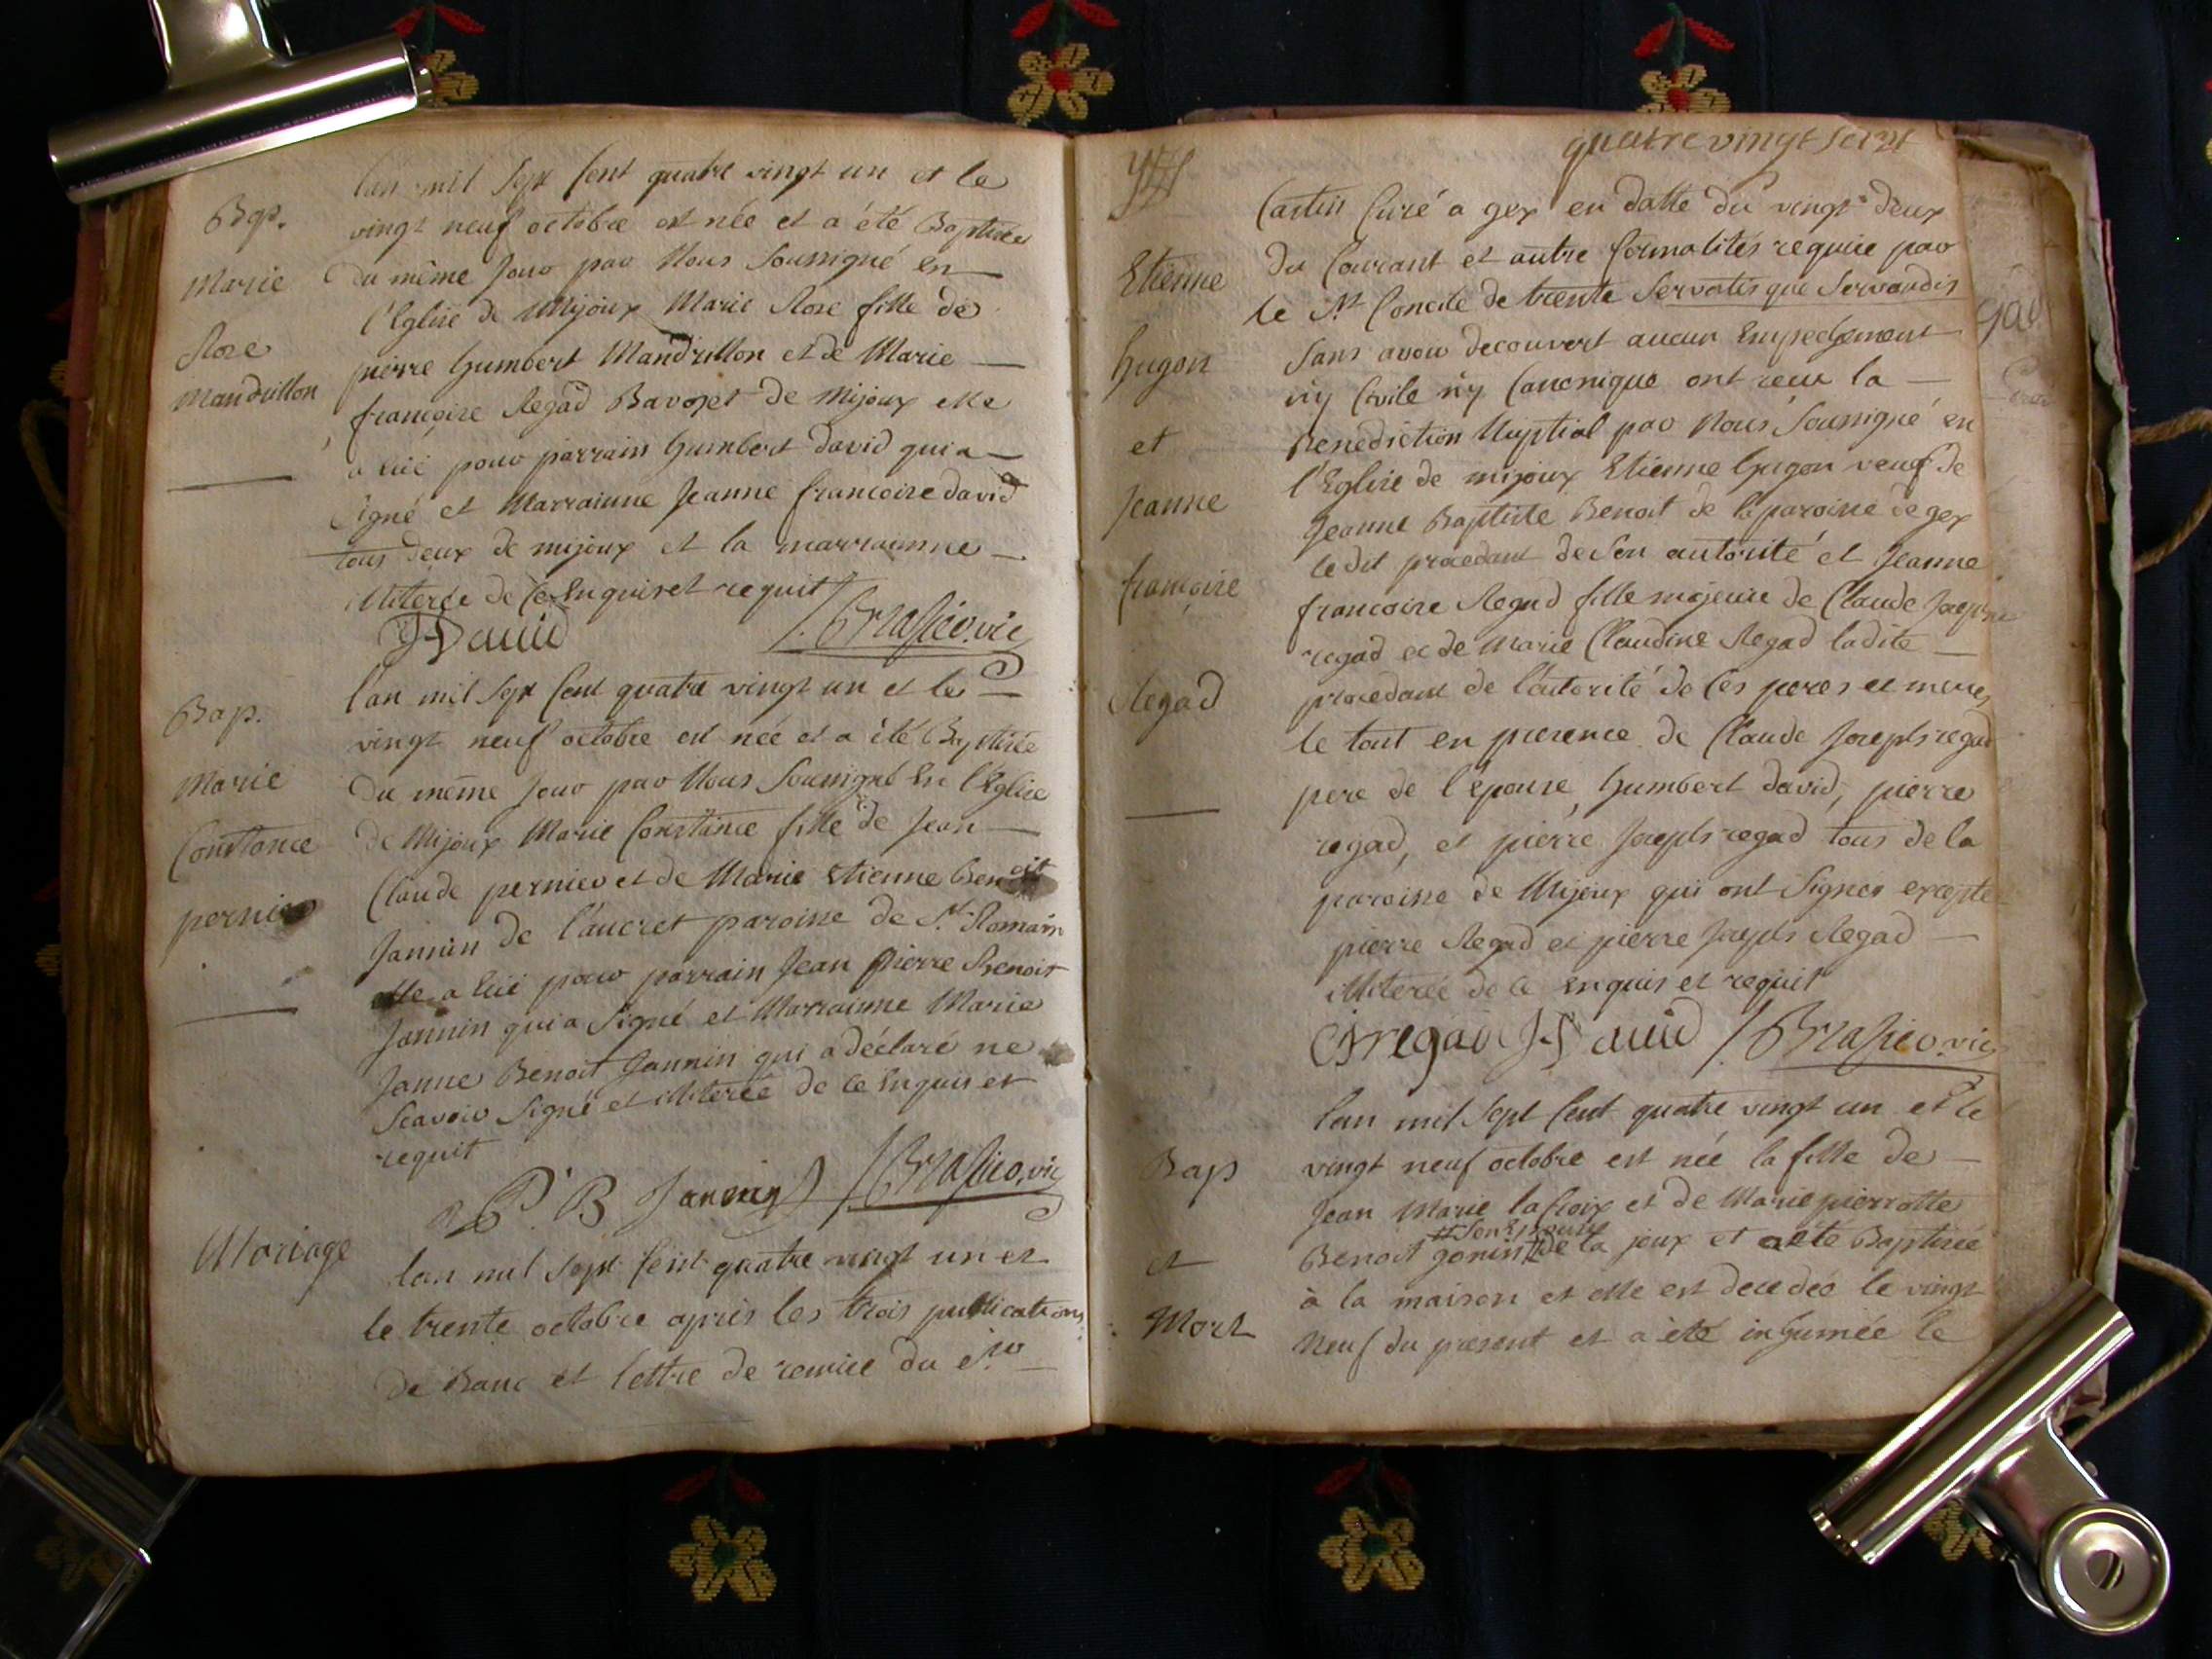 Bap.
Marie
Rose
Mandrillon
lan mil sept cent quatre vingt un et le
vingt neuf octobre est née et a été Baptisée
du même jour par Nous Soussigné en
l'Eglise de Mijoux Marie Rose fille de
pierre humbert Mandrillon et de Marie
francoise Regad Bavozet de Mijoux elle
a eue pour parrain humbert david qui a
signé et Marrainne Jeanne francoise david
tous deux de mijoux et la marrainne
illiterée de ce Enquis et requit
J David
Bap.
Marie
Constance
pernier
l'an mil sept cent quatre vingt un et le
vingt neuf octobre est née et a été Baptisée
du même jour par Nous Soussigné en l'Eglise
de Mijoux Marie Constance fille de Jean
Claude pernier et de Marie Etienne Benoit
Jannin de l'aucret paroisse de St. Romain
elle a eue pour parrain Jean pierre Benoit
Jannin qui a Signé et Marrainne Marie
Janne Benoit Jannin qui a déclaré ne
Scavoir Signé et illiterée de ce Enquis et
requit
P. B Jannin
Mariage
lan mil sept cent quatre vingt un et
le trente octobre après les trois publications
de Banc et lettre de remise du
quatre vingt seize
Etienne
hugon
et
Jeanne
françoise
Regad
Castin Curé a gex en datte du vingt deux
du Courant et autre formalités requise par
le St. Concile de trente Servatis que Servandis
sans avoir decouvert aucun Empechement
n'y Civile n'y Canonique ont recu la
Benediction Nuptial par Nous Soussigné en
l'Eglise de mijoux Etienne hugon veuf de
Jeanne Baptiste Benoit de la paroisse de gex
le dit procedant de son autorité et Jeanne
francoise Regad fille majeure de Claude Joseph
regad et de Marie Claudine Regad ladite
procedant de l'autorité de ses peres et meres
le tout en presence de Claude Joseph regad
pere de l'épouse, humbert david, pierre
regad, et pierre Joseph regad tous de la
paroisse de Mijoux qui ont Signer excepte
pierre Regad et pierre Joseph Regad
illiterée de ce enquis et requit
CJ regad J David
Bap
et
Mort
lan mil sept cent quatre vingt un et le
vingt neuf octobre est née la fille de
Jean Marie lacroix et de Marie pierrotte
son Epouse
Benoit gonin de la joux et a été Baptisée
à la maison et elle est decedée le vingt
neuf du present et a été inhumée le